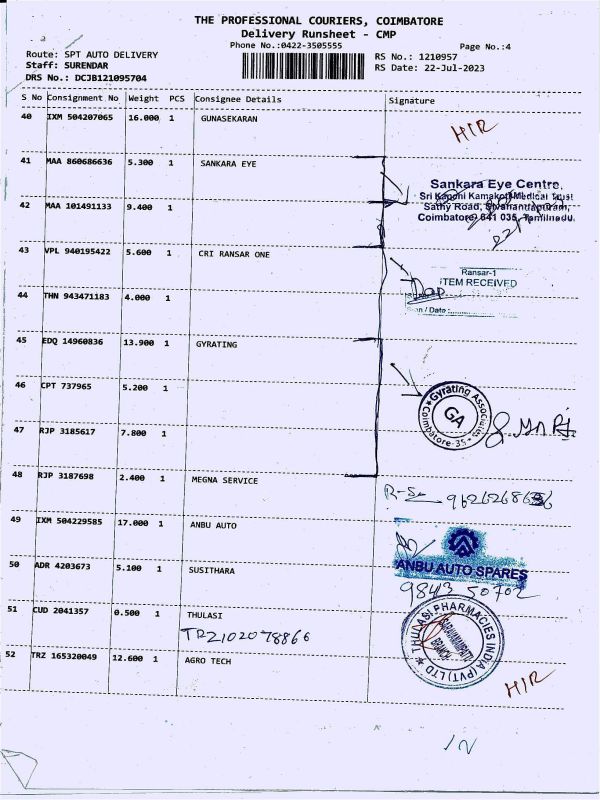 THE PROFESSIONAL COURIERS, COIMBATORE
Delivery Runsheet - CMP
Phone No.:0422-3505555 Page No.:4
Route: SPT AUTO DELIVERY RS No.: 1210957
Staff: SURENDAR RS Date: 22-Jul-2023
DRS No.: DCJB121095704
S No Consignment No Weight PCS Consignee Details Signature
40 IXM 504207065 16.000 1 GUNASEKARAN
HIR
41 MAA 860686636 5.300 1 SANKARA EYE
Sankara Eye Centre,
Sri Kanchi Kamakoti Medical Trust
Sathy Road, Sivanandapuram,
Coimbatore 641 035, Tamilnadu.
42 MAA 101491133 9.400 1
43 VPL 940195422 5.600 1 CRI RANSAR ONE
Ransar-1
ITEM RECEIVED
Sign / Date
44 THN 943471183 4.000 1
45 EDQ 14960836 13.900 1 GYRATING
46 CPT 737965 5.200 1
Gyrating Associates
GA
Coimbatore-35
47 RJP 3185617 7.800 1
48 RJP 3187698 2.400 1 MEGNA SERVICE
49 IXM 504229585 17.000 1 ANBU AUTO
ANBU AUTO SPARES
9843 50702
50 ADR 4203673 5.100 1 SUSITHARA
51 CUD 2041357 0.500 1 THULASI
TRZ102078866
THULASI PHARMACIES INDIA (PVT) LTD
BRANCH
52 TRZ 165320049 12.600 1 AGRO TECH
HIR